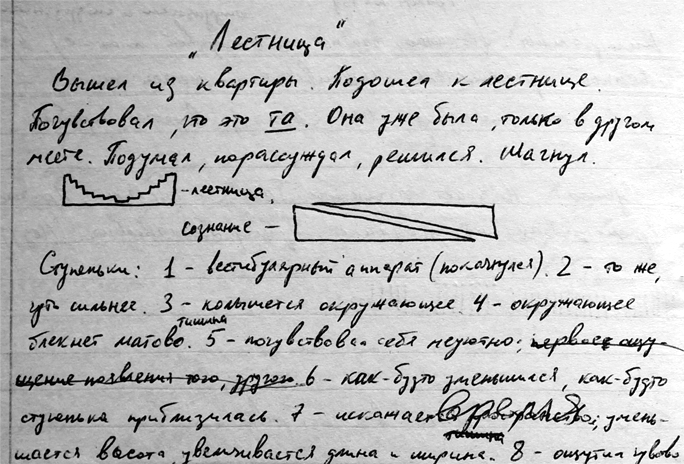 „Лестница“
Вышел из квартиры. Подошел к лестнице.
Почувствовал, что это та. Она уже была, только в другом
месте. Подумал, порассуждал, решился. Шагнул.
– лестница.
сознание –
Ступеньки: 1 – вестибулярный аппарат (покачнулся). 2 – то же,
чуть сильнее. 3 – колышется окружающее. 4 – окружающее
тишина
блекнет матово. 5 – почувствовал себя неуютно;
6 – как-будто уменьшился, как-будто
ступенька приблизилась. 7 – пространство; умень-
тишина
шается высота, увеличивается длина и ширина. 8 – ощутил